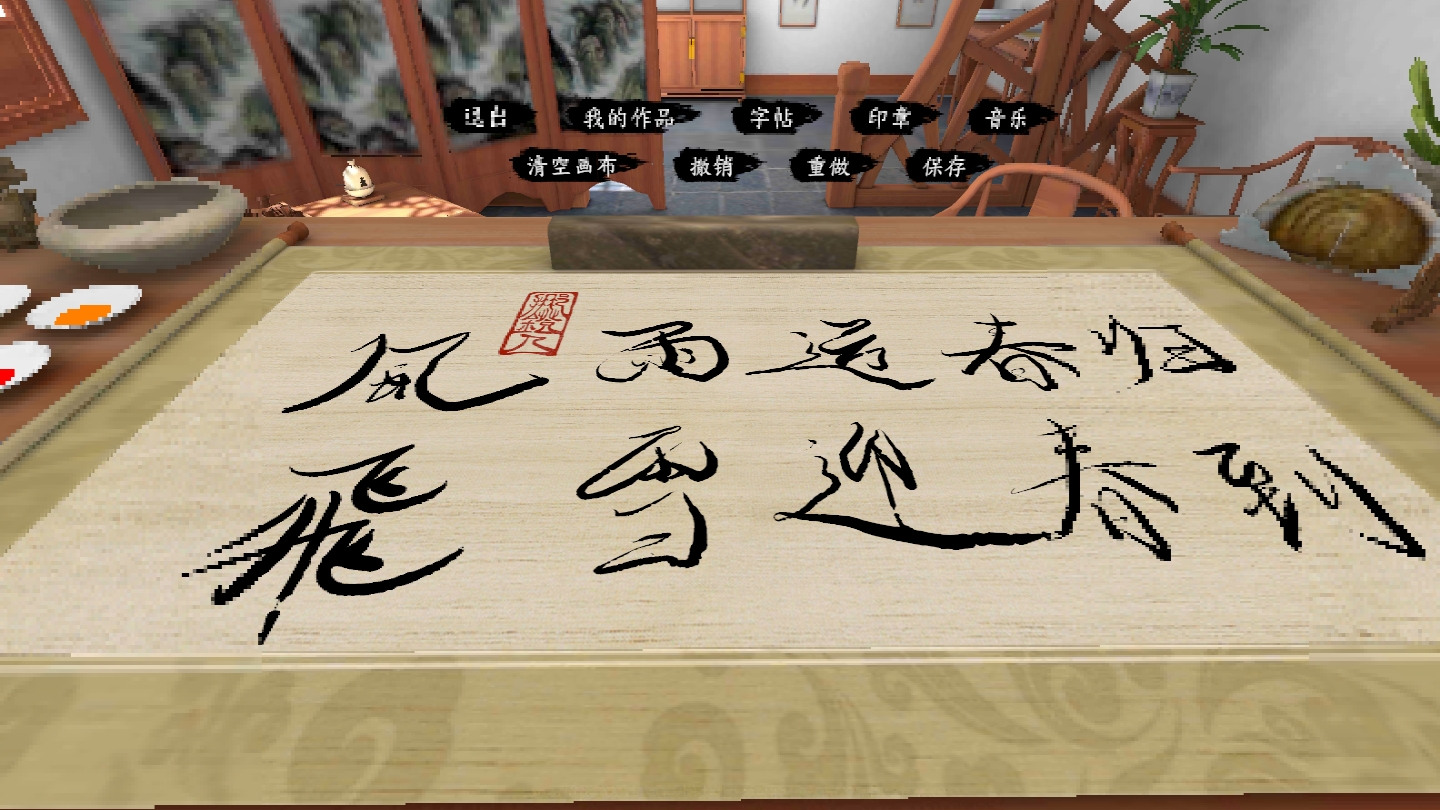 退出 我的作品 字帖 印章 音乐
清空画布 撤销 重做 保存
風雨送春归
飛雪迎春到